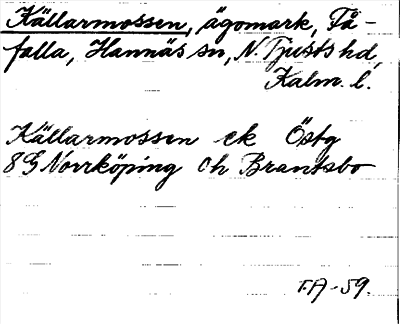 Källarmossen, ägomark, Få-
falla, Hannäs sn, N. Tjusts hd,
Kalm. l.
Källarmossen ek Östg
8G Norrköping Ch Brantsbo
T.A-59.